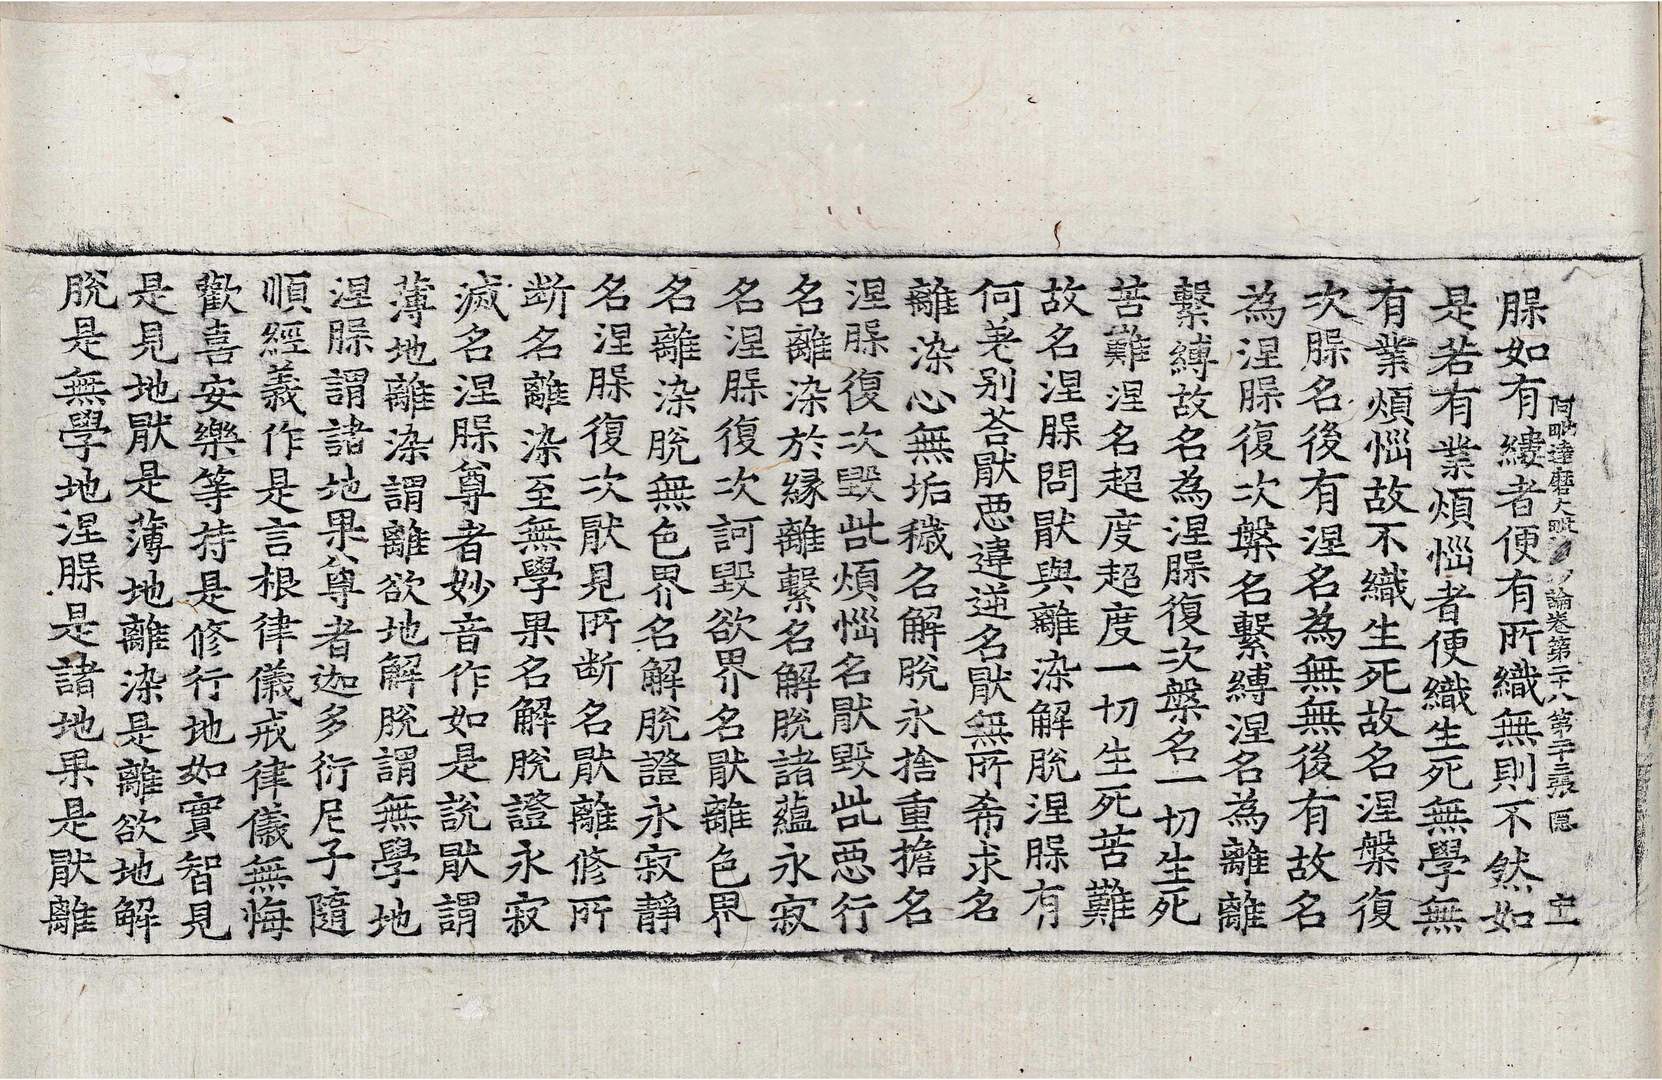 阿毗達磨大毗沙論卷第二十八 第二十三張 隱
腺如有縷者便有所織無則不然如
是若有業煩惱者便織生死無學無
有業煩惱故不織生死故名涅槃復
次腺名後有涅名為無無後有故名
為涅腺復次槃名繫縛涅名為離離
繫縛故名為涅腺復次槃名一切生死
苦難涅名超度超度一切生死苦難
故名涅腺問猒與離染解脫涅腺有
何差别荅猒惡違逆名猒無所希求名
離染心無垢穢名解脫永捨重擔名
涅腺復次毀呰煩惱名猒毀呰惡行
名離染於緣離繫名解脫諸蘊永寂
名涅腺復次訶毀欲界名猒離色界
名離染脫無色界名解脫證永寂靜
名涅腺復次猒見所断名猒離修所
断名離染至無學果名解脫證永寂
滅名涅腺尊者妙音作如是說猒謂
薄地離染謂離欲地解脫謂無學地
涅腺謂諸地果尊者迦多衍尼子隨
順經義作是言根律儀戒律儀無悔
歡喜安樂等持是修行地如實智見
是見地猒是薄地離染是離欲地解
脫是無學地涅腺是諸地果是猒離